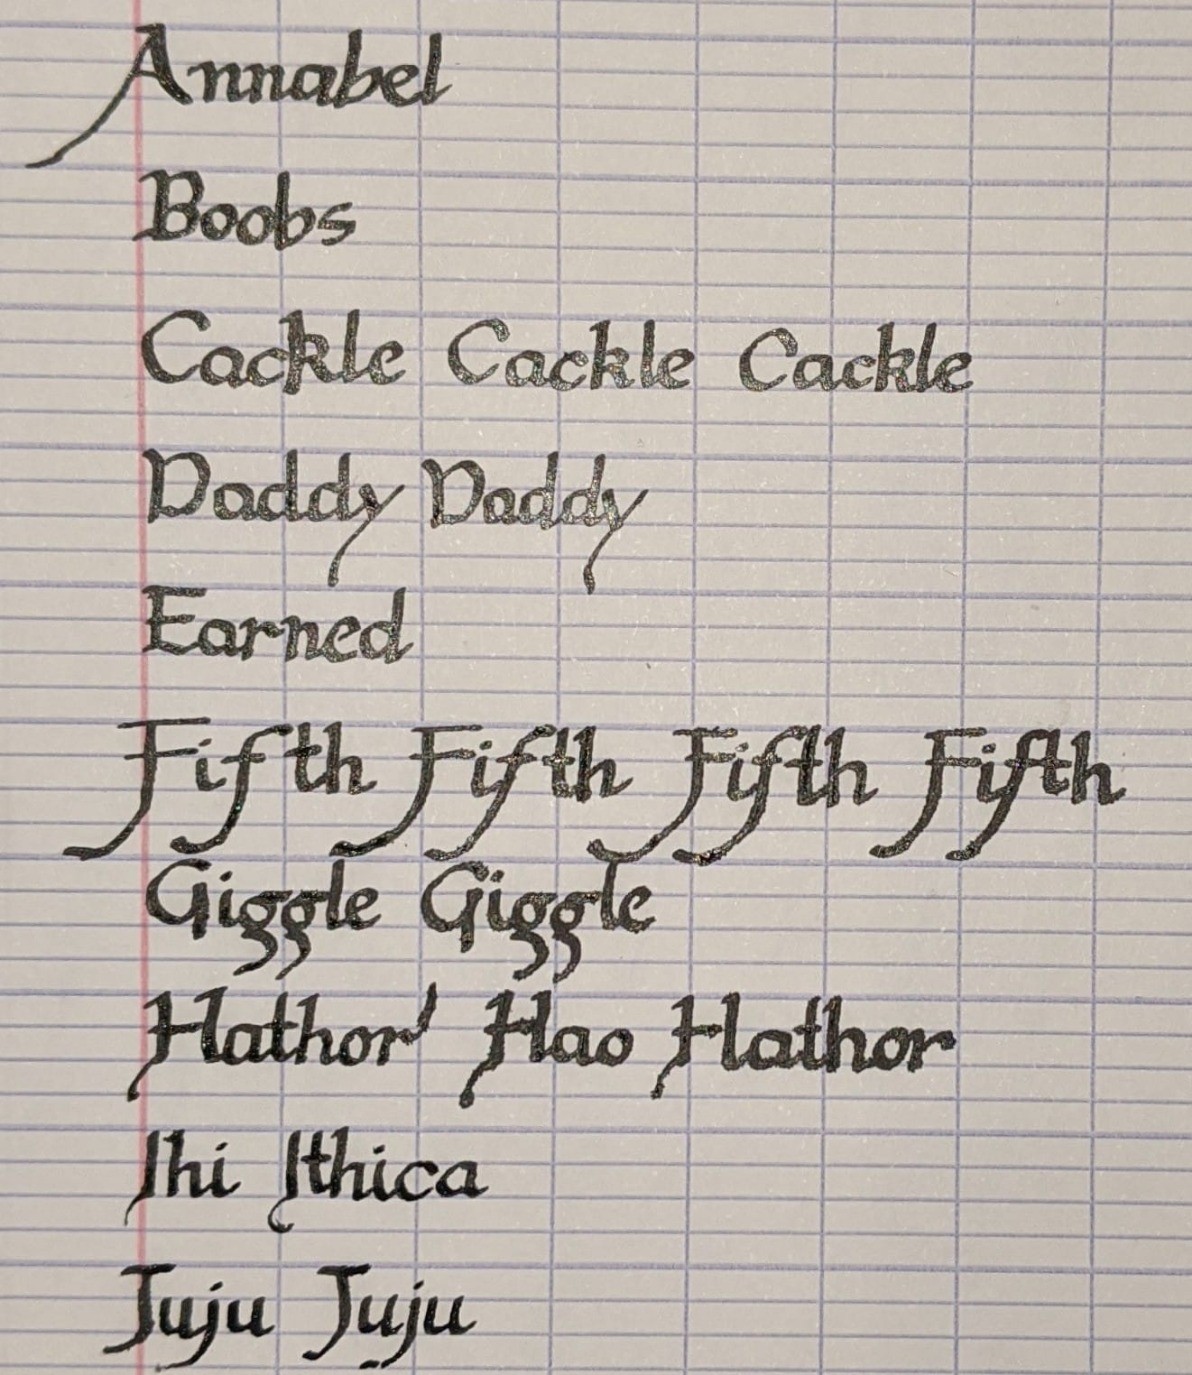 Annabel
Boobs
Cackle Cackle Cackle
Daddy Daddy
Earned
Fifth Fifth Fifth Fifth
Giggle Giggle
Hathor' Hao Hathor
Ihi Ithica
Juju Juju